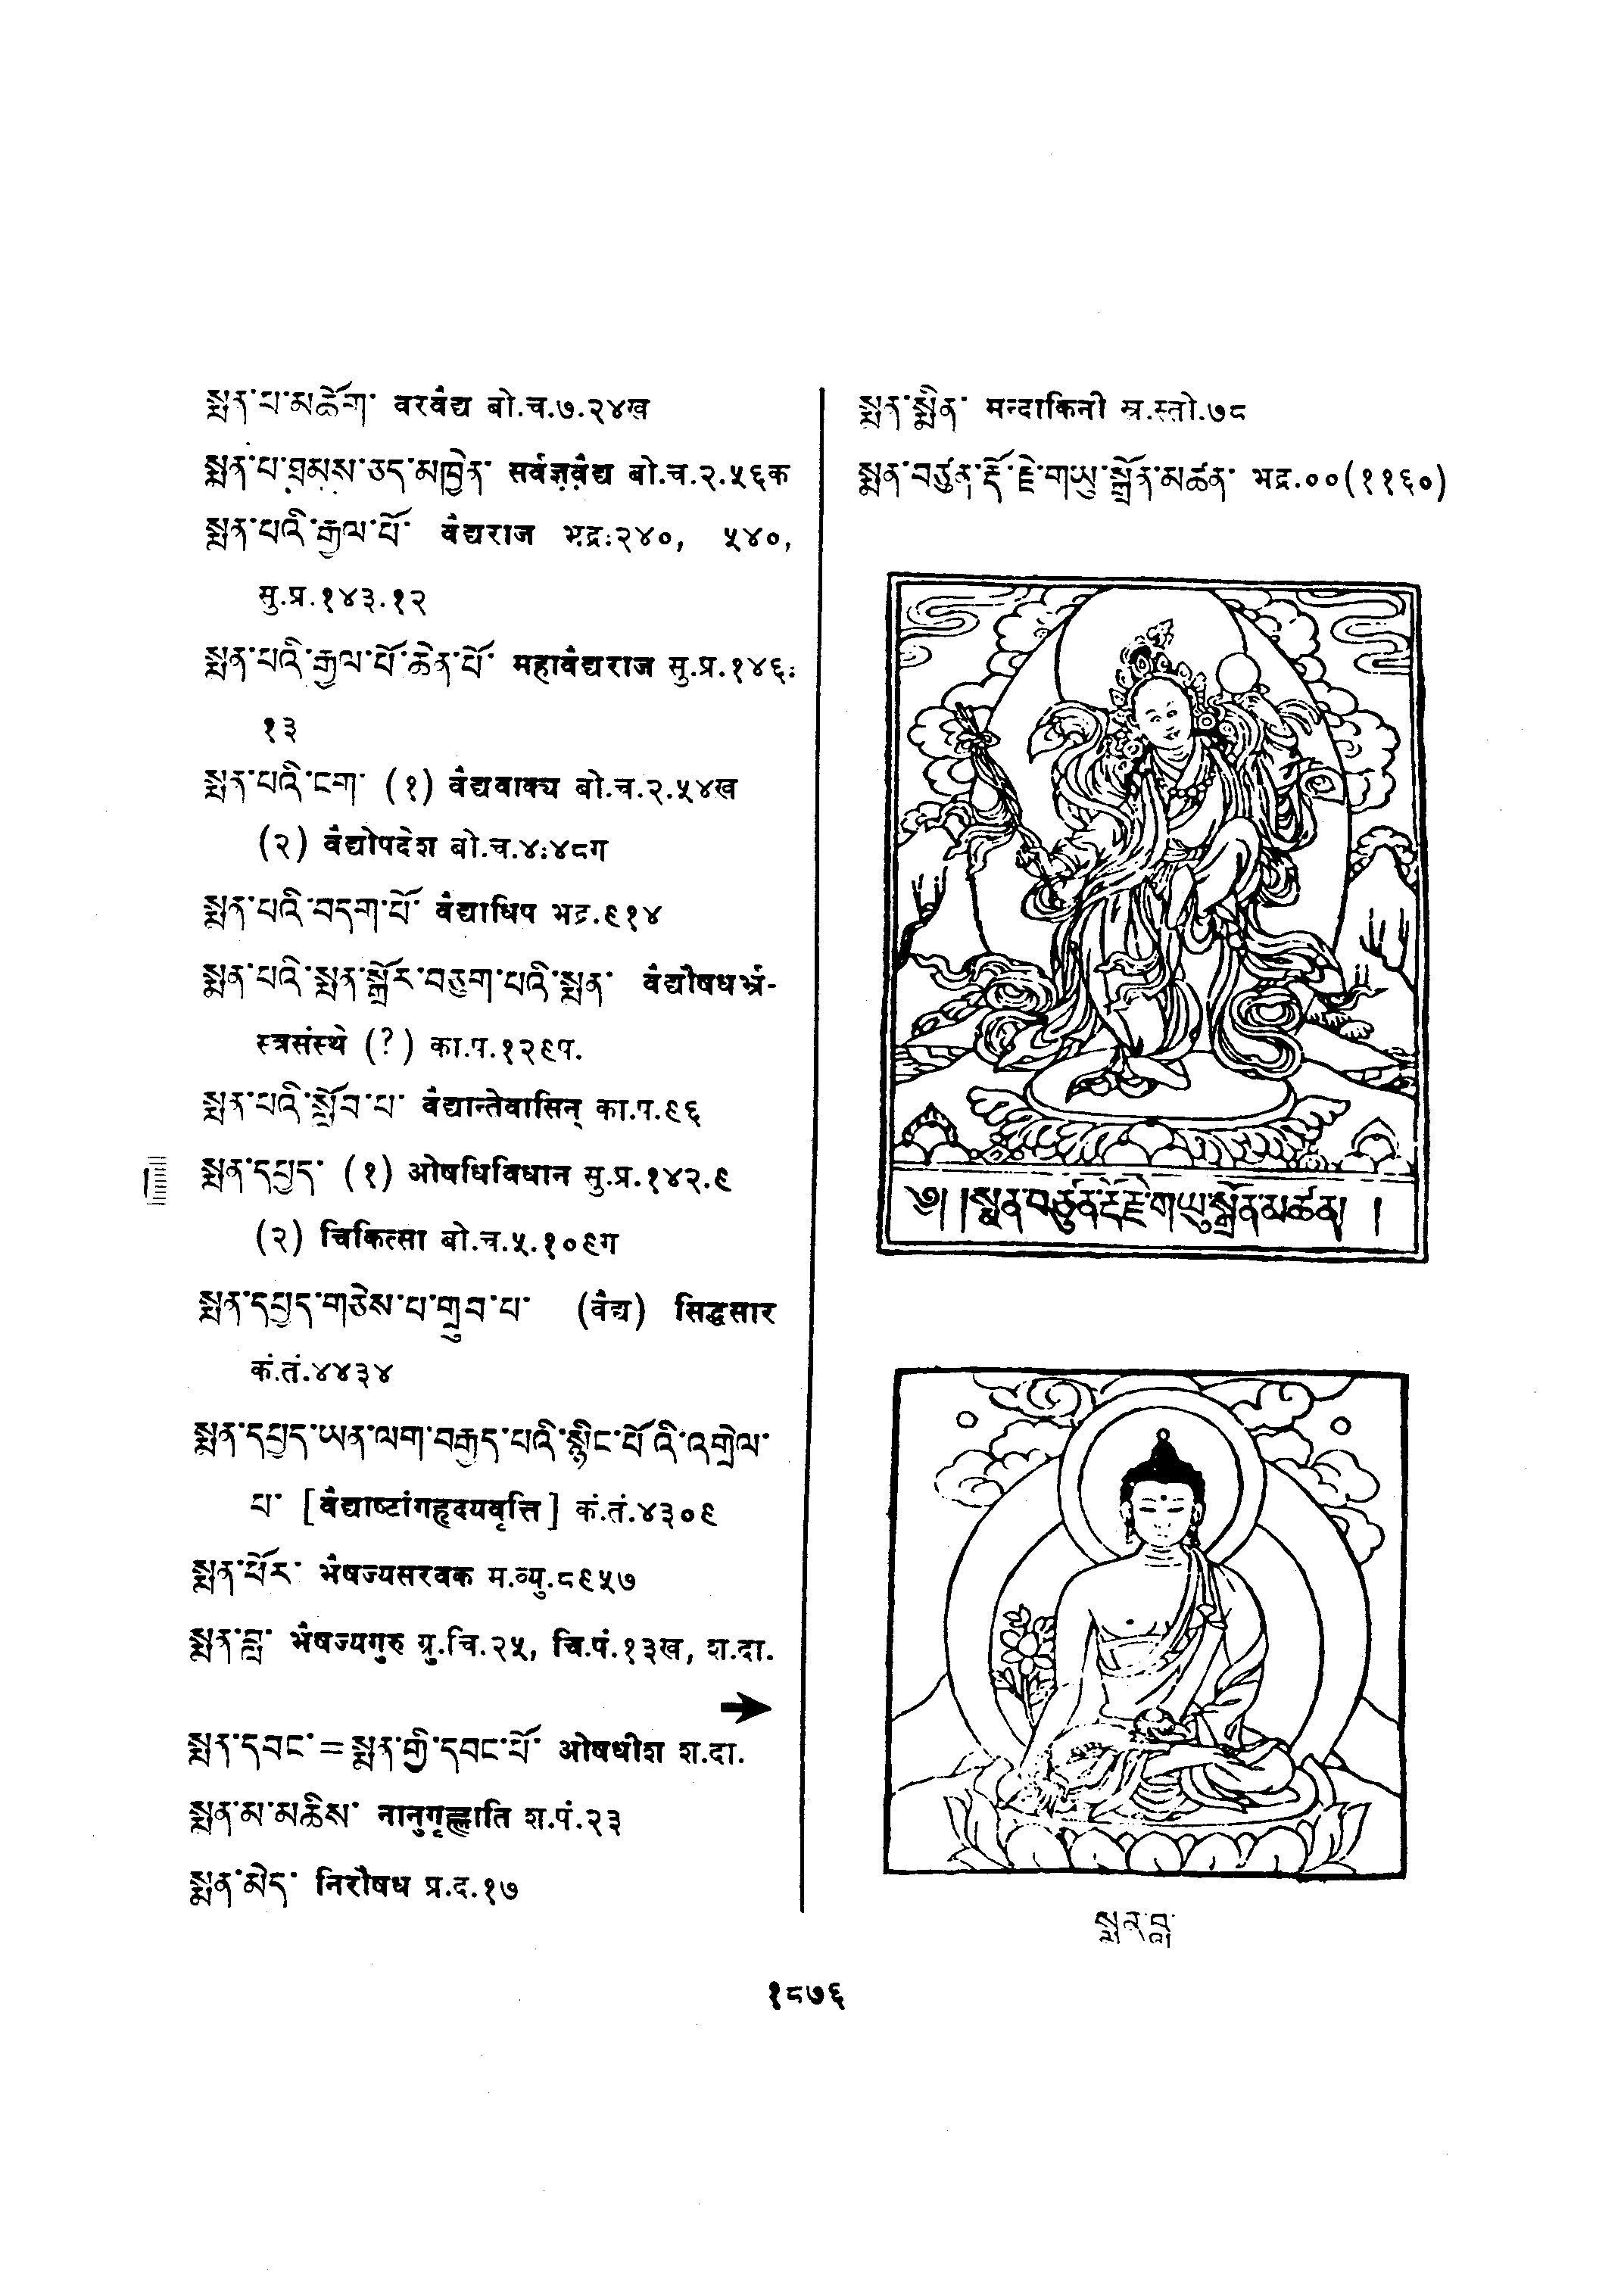 སྨན་པ་མཆོག་ वरवैद्य बो.च.७.२४ख
སྨན་པ་ཐམས་ཅད་མཁྱེན་ सर्वज्ञवैद्य बो.च.२.५६क
སྨན་པའི་རྒྱལ་པོ་ वैद्यराज भद्र.२४०, ५४०,
सु.प्र.१४३.१२
སྨན་པའི་རྒྱལ་པོ་ཆེན་པོ་ महावैद्यराज सु.प्र.१४६.
१३
སྨན་པའི་ངག་ (१) वैद्यवाक्य बो.च.२.५४ख
(२) वैद्योपदेश बो.च.४.४८ग
སྨན་པའི་བདག་པོ་ वैद्याधिप भद्र.९१४
སྨན་པའི་སྨན་སྦྱོར་བཅུག་པའི་སྨན་ वैद्यौषधभ्र-
स्त्रसंस्थे (?) का.प.१२९प.
སྨན་པའི་སློབ་པ་ वैद्यान्तेवासिन् का.प.९६
སྨན་དཔྱད་ (१) ओषधिविधान सु.प्र.१४२.९
(२) चिकित्सा बो.च.५.१०९ग
སྨན་དཔྱད་གཅེས་པ་གྲུབ་པ་ (वैद्य) सिद्धसार
कं.तं.४४३४
སྨན་དཔྱད་ཡན་ལག་བརྒྱད་པའི་སྙིང་པོའི་འགྲེལ་
པ་ [वैद्याष्टांगहृदयवृत्ति] कं.तं.४३०९
སྨན་ཕོར་ भैषज्यसरवक म.व्यु.८९५७
སྨན་བླ་ भैषज्यगुरु ग्रु.चि.२५, त्रि.पं.१३ख, श.दा.
སྨན་དབང་=སྨན་གྱི་དབང་པོ་ ओषधीश श.दा.
སྨན་མ་མཆིས་ नानुगृह्णाति श.पं.२३
སྨན་མེད་ निरौषध प्र.द.१७
སྨན་སྨིན་ मन्दाकिनी स्र.स्तो.७८
སྨན་བཙུན་རྡོ་རྗེ་གཡུ་སྒྲོན་མཚན་ भद्र.००(११६०)
༄། །སྨན་བཙུན་རྡོ་རྗེ་གཡུ་སྒྲོན་མཚན། །
སྨན་བླ་
१८७६